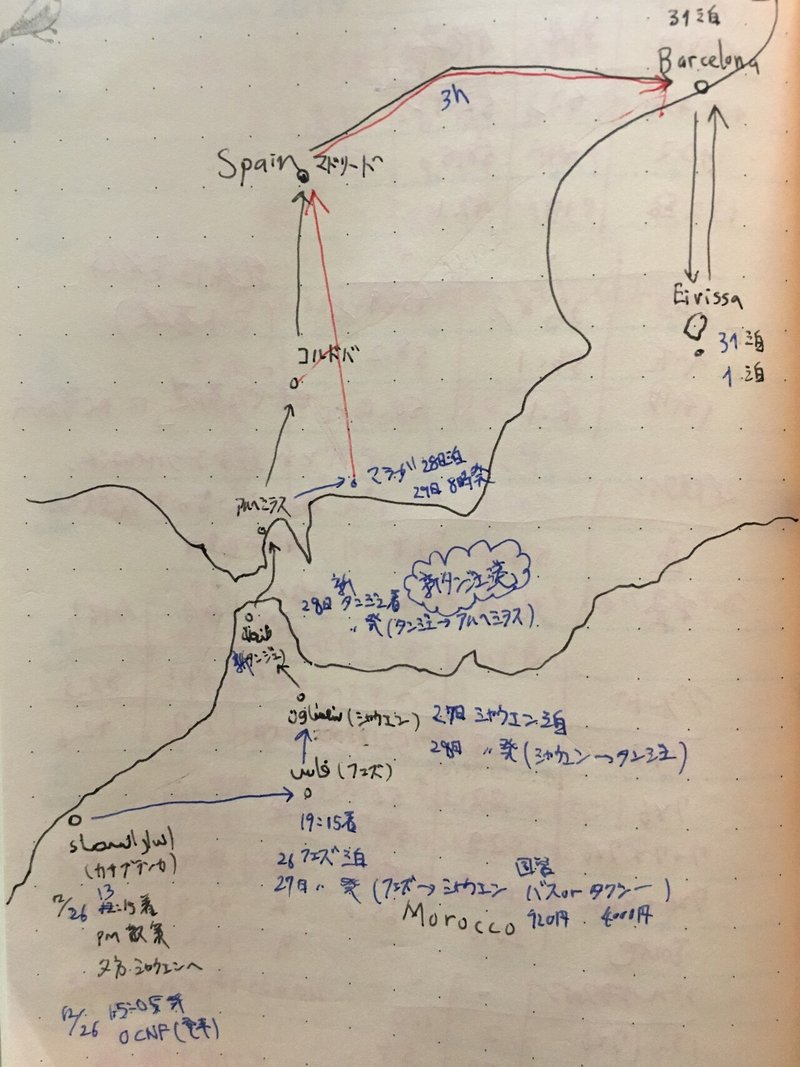 31泊
Barcelona
3h
Spain マドリード
Eivissa
31泊
1泊
コルドバ
マラガ 28日泊
29日 8時発
アルヘシラス
新タンジェ港
28日 新タンジェ着
〃 発 (タンジェ→アルヘシラス)
طنجة
新タンジェ
(シャウエン) 27日 シャウエン泊
28日 〃 発 (シャウエン→タンジェ)
فاس (フェズ)
19:15着
26 フェズ泊
27日 〃 発 (フェズ→シャウエン 国営バス or タクシー)
920円 4000円
Morocco
الدار البيضاء
(カサブランカ)
12/26 13:15着
PM 散策
夕方 シャウエンへ
12/26 15:05発
OCNF